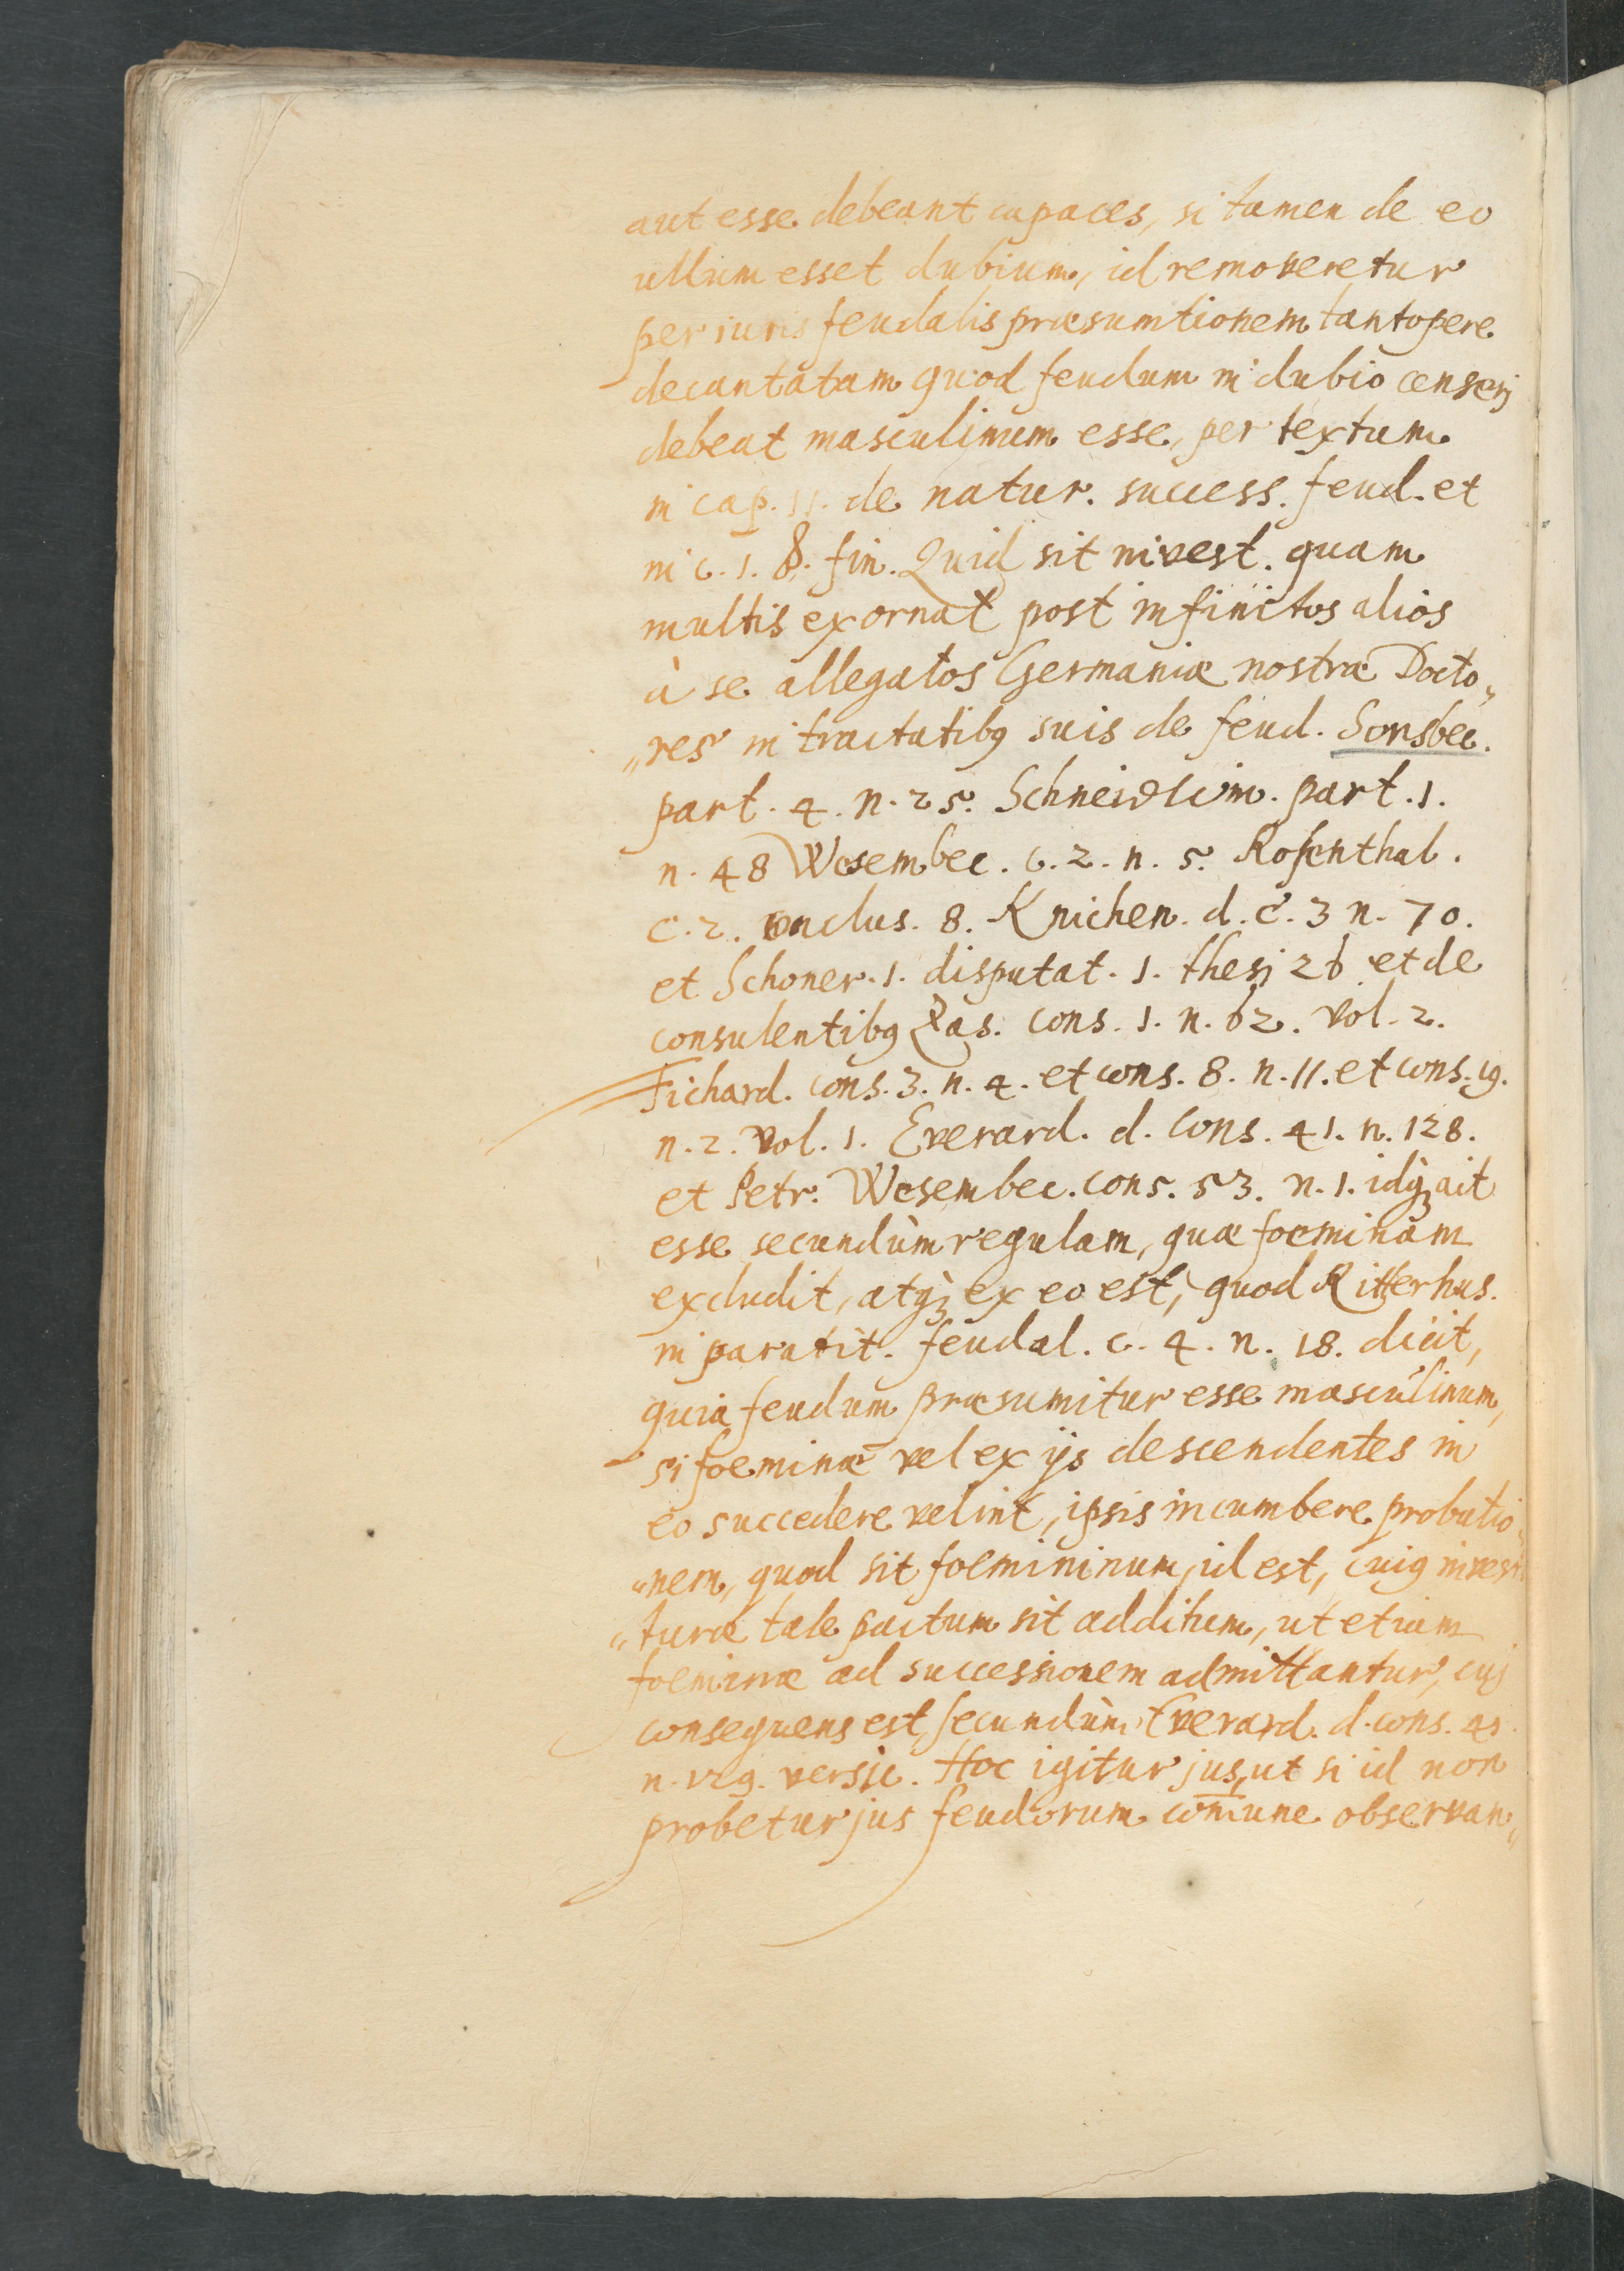 aut esse debeant capaces, si tamen de eo
ullum esset dubium, id removeretur
per iuris feudalis præsumtionem tantopere
decantatam quod feudum in dubio censerj
debeat masculinum esse, per textum
in cap. 11. de natur. success. feud. et
in c. 1. §. fin. Quid sit invest. quam
multis exornat post infinitos alios
à se allegatos Germaniæ nostræ Docto„
„res in tractatibꝰ suis de feud. Sonsbec.
part. 4. n. 25. Schneidwim. part. 1.
n. 48 Wesembec. c. 2. n. 5. Rosenthal.
c. 2. conclus. 8. Knichen. d. c. 3 n. 70.
et Schoner. 1. disputat. 1. thesj 26 et de
consulentibꝰ Zas. cons. 1. n. 62. vol. 2.
Fichard. cons. 3. n. 4. et cons. 8. n. 11. et cons. 19.
n. 2. vol. 1. Everard. d. cons. 41. n. 128.
et Petr. Wesembec. cons. 53. n. 1. idq̀ꝫ ait
esse secundùm regulam, quæ foeminam
excludit, atq̀ꝫ ex eo est, quod Ritterhus.
in paratit. feudal. c. 4. n. 18. dicit,
quia feudum præsumitur esse masculinum,
si foeminæ vel ex ijs descendentes in
eo succedere velint, ipsis incumbere probatio„
„nem, quod sit foemininum, id est, cuiꝰ investi
„turæ tale pactum sit additum, ut etiam
foeminæ ad successionem admittantur, cuj
consequens est, secundùm Everard. d. cons. 41.
n. 129. versic. Hoc igitur jus, ut si id non
probetur jus feudorum com̅une observan„